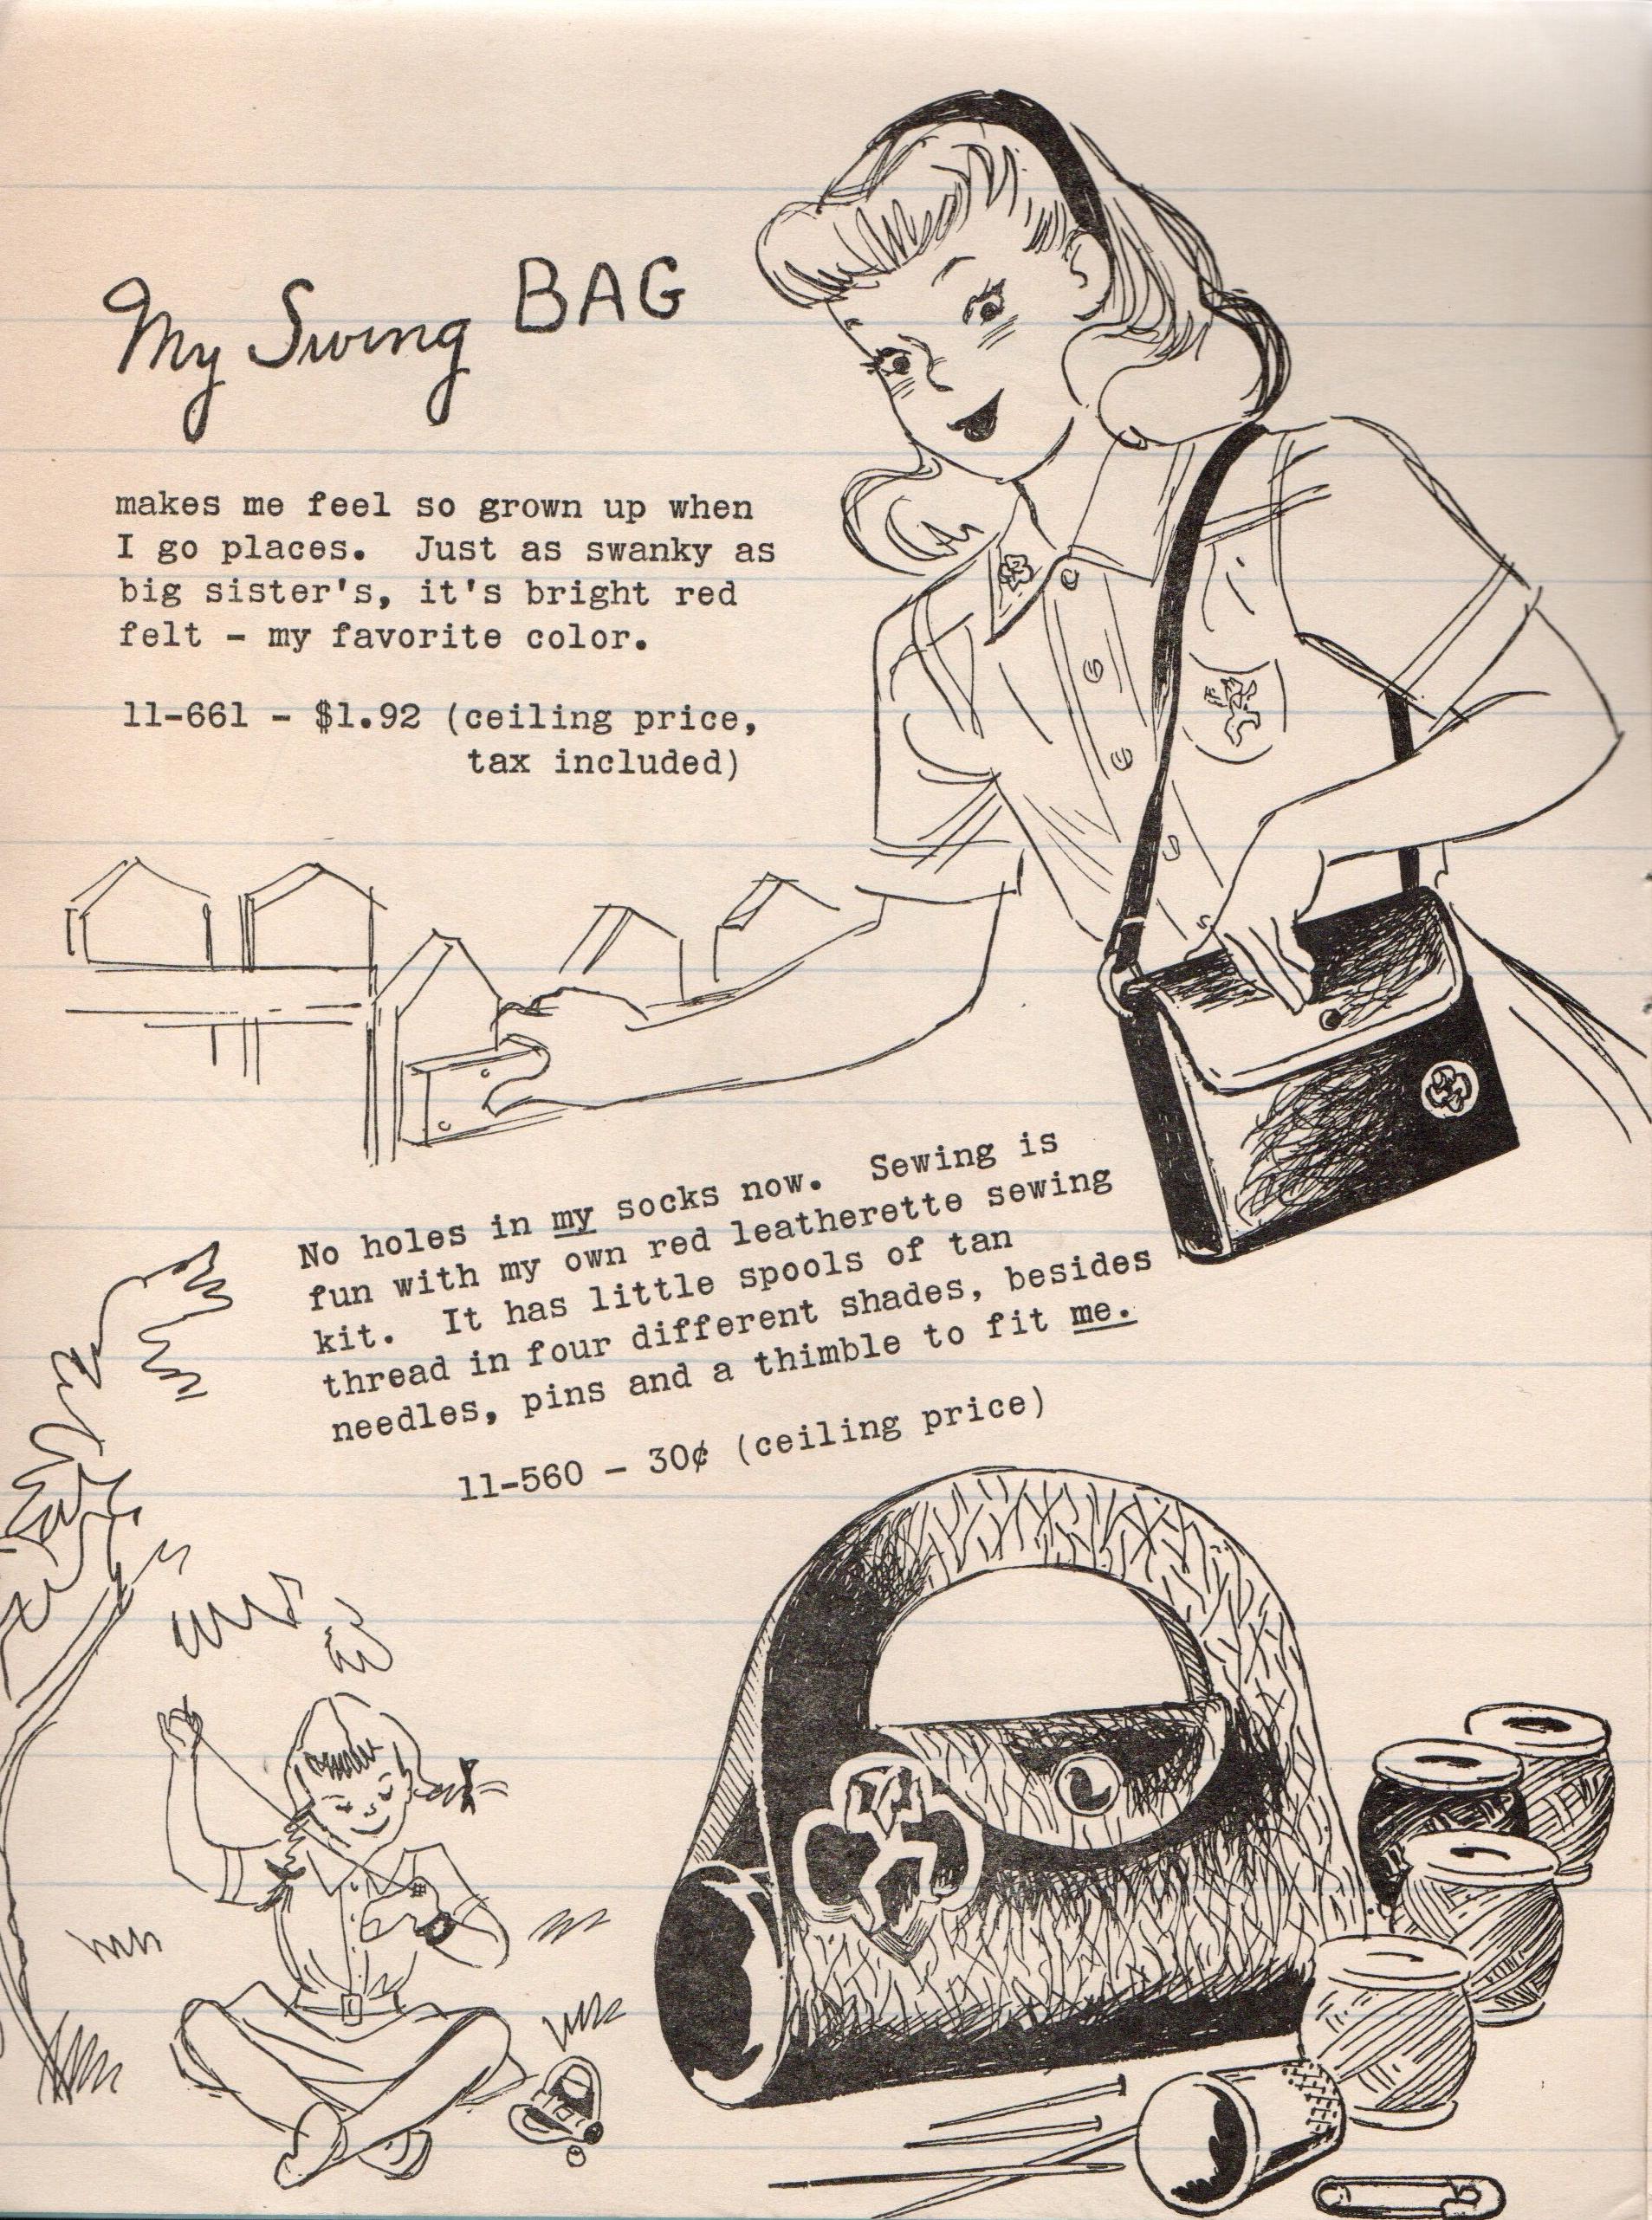 My Swing BAG
makes me feel so grown up when
I go places.  Just as swanky as
big sister's, it's bright red
felt - my favorite color.
11-661 - $1.92 (ceiling price,
tax included)
No holes in my socks now.  Sewing is
fun with my own red leatherette sewing
kit.  It has little spools of tan
thread in four different shades, besides
needles, pins and a thimble to fit me.
11-560 - 30¢ (ceiling price)